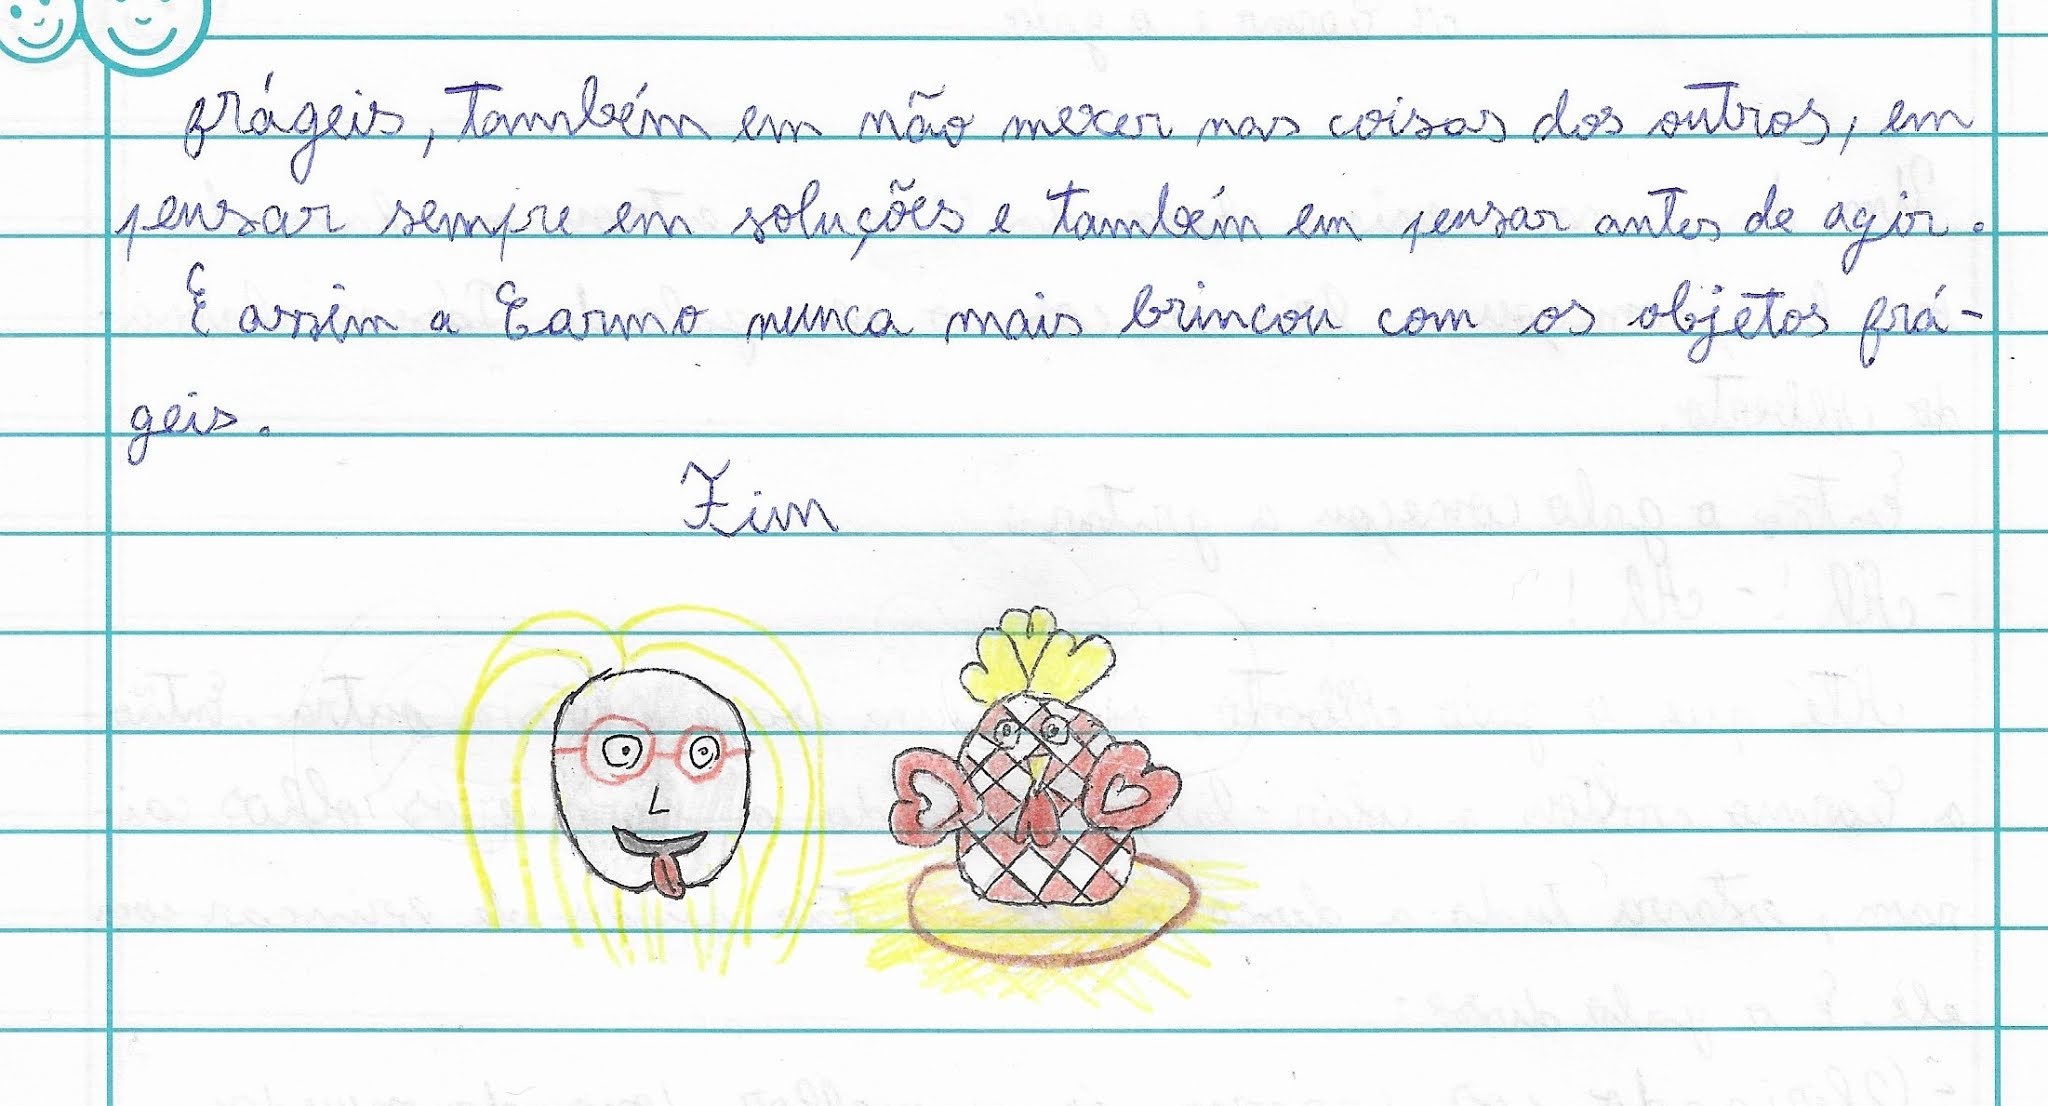 frágeis, também em não mexer nas coisas dos outros, em
pensar sempre em soluções e também em pensar antes de agir.
E assim a Carmo nunca mais brincou com os objetos frá-
geis.
Fim